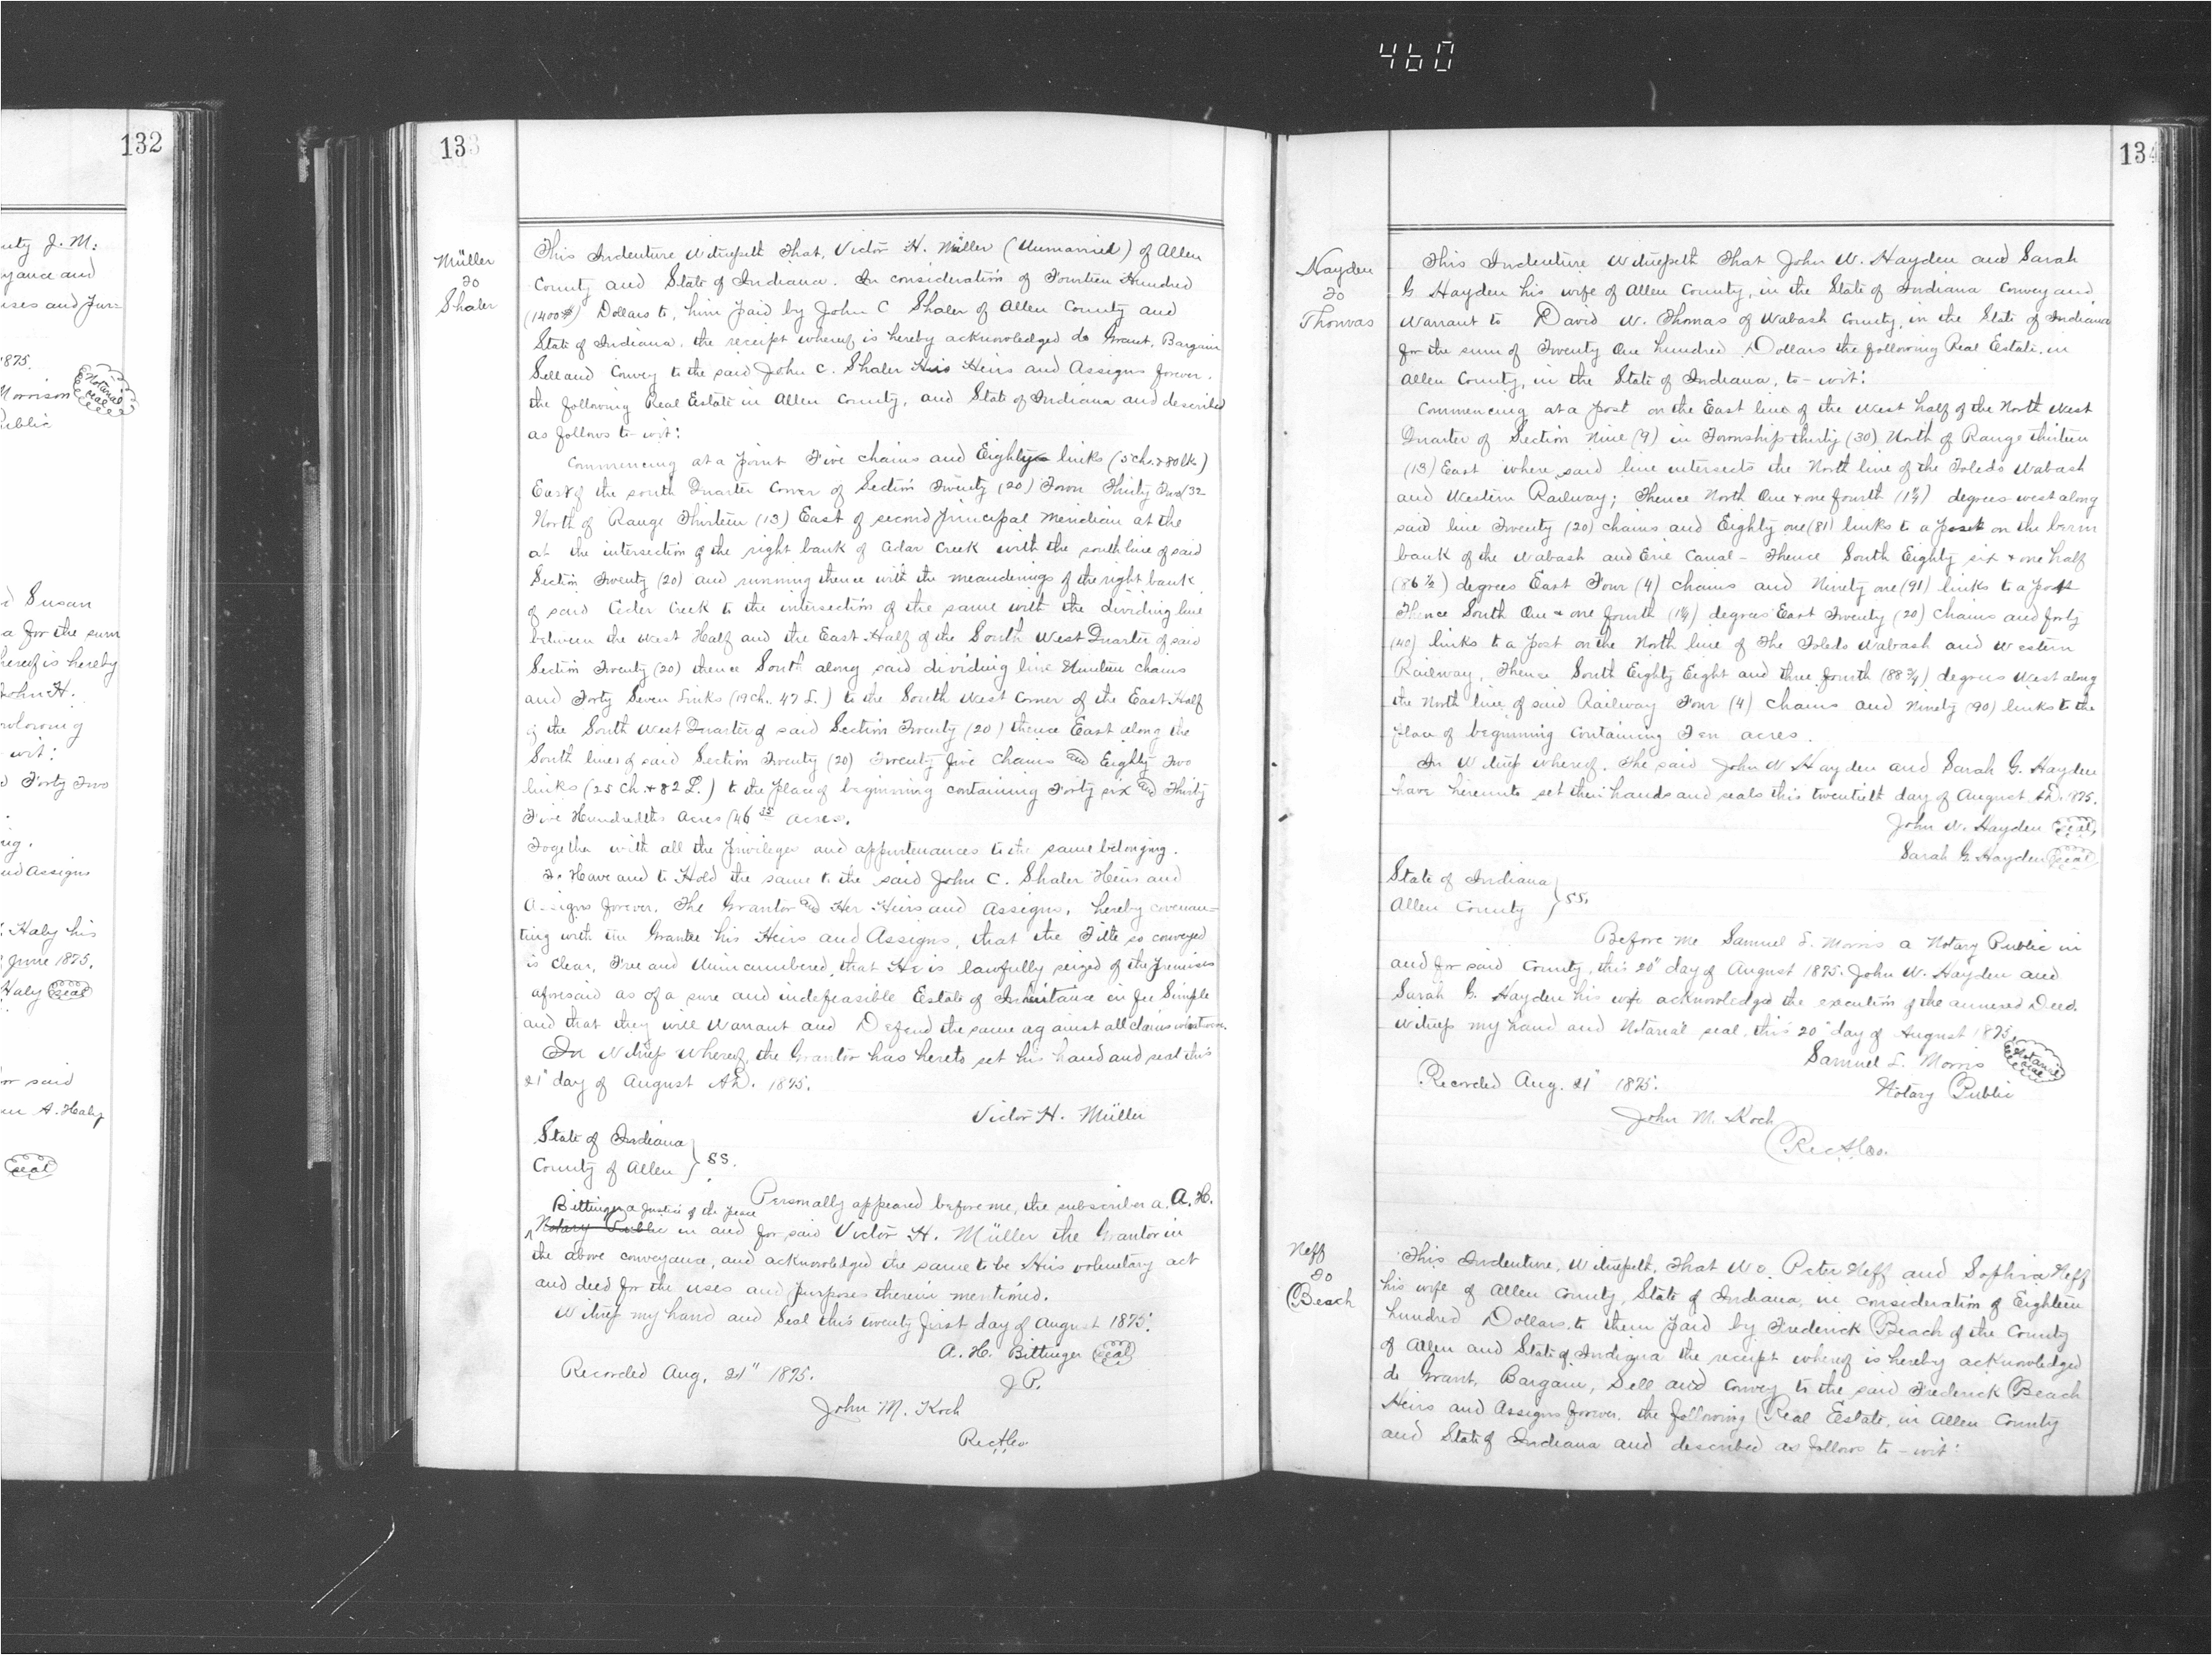 460
132
uty J. M.
yance and
uses and pur=
1875.
Morrison
Notarial
seal
ublic
d Susan
a for the sum
hereof is hereby
John H.
wit:
d Forty Two
ud Assigns
Haly his
June 1875.
Haly seal
or said
A. Haly
seal
133
Müller
To
Shaler
This Indenture Witnesseth That, Victor H. Müller (Unmarried) of Allen
County and State of Indiana. In consideration of Fourteen Hundred
(1400$) Dollars to, him paid by John C Shaler of Allen County and
State of Indiana. the receipt whereof is hereby acknowledged do Grant, Bargain
Sell and Convey to the said John C. Shaler His Heirs and Assigns forever.
the following Real Estate in Allen County, and State of Indiana and described
as follows to-wit:
Commencing at a point Five chains and Eighty links (5 chs. & 80 lks)
East of the south Quarter Corner of Section Twenty (20) Town Thirty Two (32
North of Range Thirteen (13) East of second principal Meridian at the
at the intersection of the right bank of Cedar Creek with the south line of said
Section Twenty (20) and running thence with the meanderings of the right bank
of said Ceder Creek to the intersection of the same with the dividing line
between the West Half and the East Half of the South West Quarter of said
Section Twenty (20) thence South along said dividing line Nineteen chains
and Forty Seven Links (19 ch. 47 L.) to the South West Corner of the East Half
of the South West Quarter of said Section Twenty (20) thence East along the
South line of said Section Twenty (20) Twenty five Chains and Eighty Two
links (25 Ch. & 82 L.) to the place of beginning containing Forty six and Thirty
Five Hundredths Acres (46 35 acres.
Together with all the privileges and appurtenances to the same belonging.
To Have and to Hold the same to the said John C. Shaler Heirs and
Assigns forever. The Grantor and Her Heirs and Assigns, hereby covenan=
ting with the Grantee his Heirs and Assigns, that the Title so conveyed
is clear, Free and Unincumbered, that He is lawfully seized of the premises
aforesaid as of a sure and indefeasible Estate of Inheritance in fee Simple
and that they will Warrant and Defend the same against all claims whatsoever.
In Witness Whereof, the Grantor has hereto set his hand and seal this
21" day of August A.D. 1875.
Victor H. Müller
State of Indiana
County of Allen } SS.
Personally appeared before me, the subscriber a, A. H.
Bittinger a Justice of the Peace
Notary Public in and for said Victor H. Müller the Grantor in
the above conveyance, and acknowledged the same to be His voluntary act
and deed for the uses and purposes therein mentioned.
Witness my hand and Seal this twenty first day of August 1875.
A. H. Bittinger seal
Recorded Aug. 21" 1875.
J P.
John M. Koch
134
Hayden
To
Thomas
This Indenture Witnesseth That John W. Hayden and Sarah
G Hayden his wife of Allen County, in the State of Indiana Convey and
Warrant to David W. Thomas of Wabash County, in the State of Indiana
for the sum of Twenty One hundred Dollars the following Real Estate, in
Allen County, in the State of Indiana, to-wit:
Commencing at a post on the East line of the West half of the North West
Quarter of Section Nine (9) in Township thirty (30) North of Range thirteen
(13) East where said line intersects the North line of the Toledo Wabash
and Western Railway; Thence North One & one fourth (1¼) degrees west along
said line Twenty (20) chains and Eighty one (81) links to a post on the berm
bank of the Wabash and Erie Canal - Thence South Eighty six & one half
(86½) degrees East Four (4) Chains and Ninety one (91) links to a post
Thence South One & one fourth (1¼) degrees East Twenty (20) Chains and forty
(40) links to a post on the North line of the Toledo Wabash and Western
Railway, Thence South Eighty Eight and three fourth (88¾) degrees West along
the North line of said Railway Four (4) chains and Ninety (90) links to the
place of beginning Containing Ten acres.
In Witness whereof. The said John W Hayden and Sarah G. Hayden
have hereunto set their hands and seals this twentieth day of August A.D. 1875.
John W. Hayden seal
Sarah G. Hayden seal
State of Indiana
Allen County } SS.
Before me Samuel L. Morris a Notary Public in
and for said County, this 20" day of August 1875. John W. Hayden and
Sarah G. Hayden his wife acknowledged the execution of the annexed Deed.
Witness my hand and Notarial seal. this 20" day of August 1875.
Samuel L. Morris
Notarial
seal
Recorded Aug. 21" 1875.
Notary Public
John M. Koch
Neff
To
Beach
This Indenture, Witnesseth, That We Peter Neff and Sophia Neff
his wife of Allen County, State of Indiana, in consideration of Eighteen
hundred Dollars, to them paid by Frederick Beach of the County
of Allen and State of Indiana the receipt whereof is hereby acknowledged
do Grant, Bargain, Sell and Convey to the said Frederick Beach
Heirs and Assigns forever, the following Real Estate, in Allen County
and State of Indiana and described as follows to-wit: